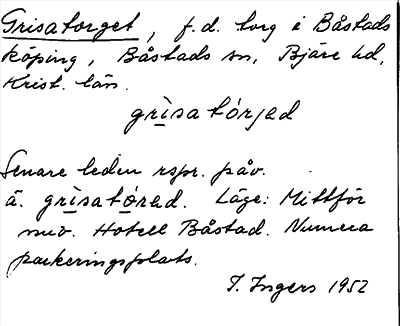 Grisatorget, f.d. torg i Båstads
köping, Båstads sn, Bjäre hd,
Krist. län.
grìsatórjed
Senare leden rspr. påv.
ä. grìsatóred. Läge: Mittför
nuv. Hotell Båstad. Numera
parkeringsplats.
I. Ingers 1952